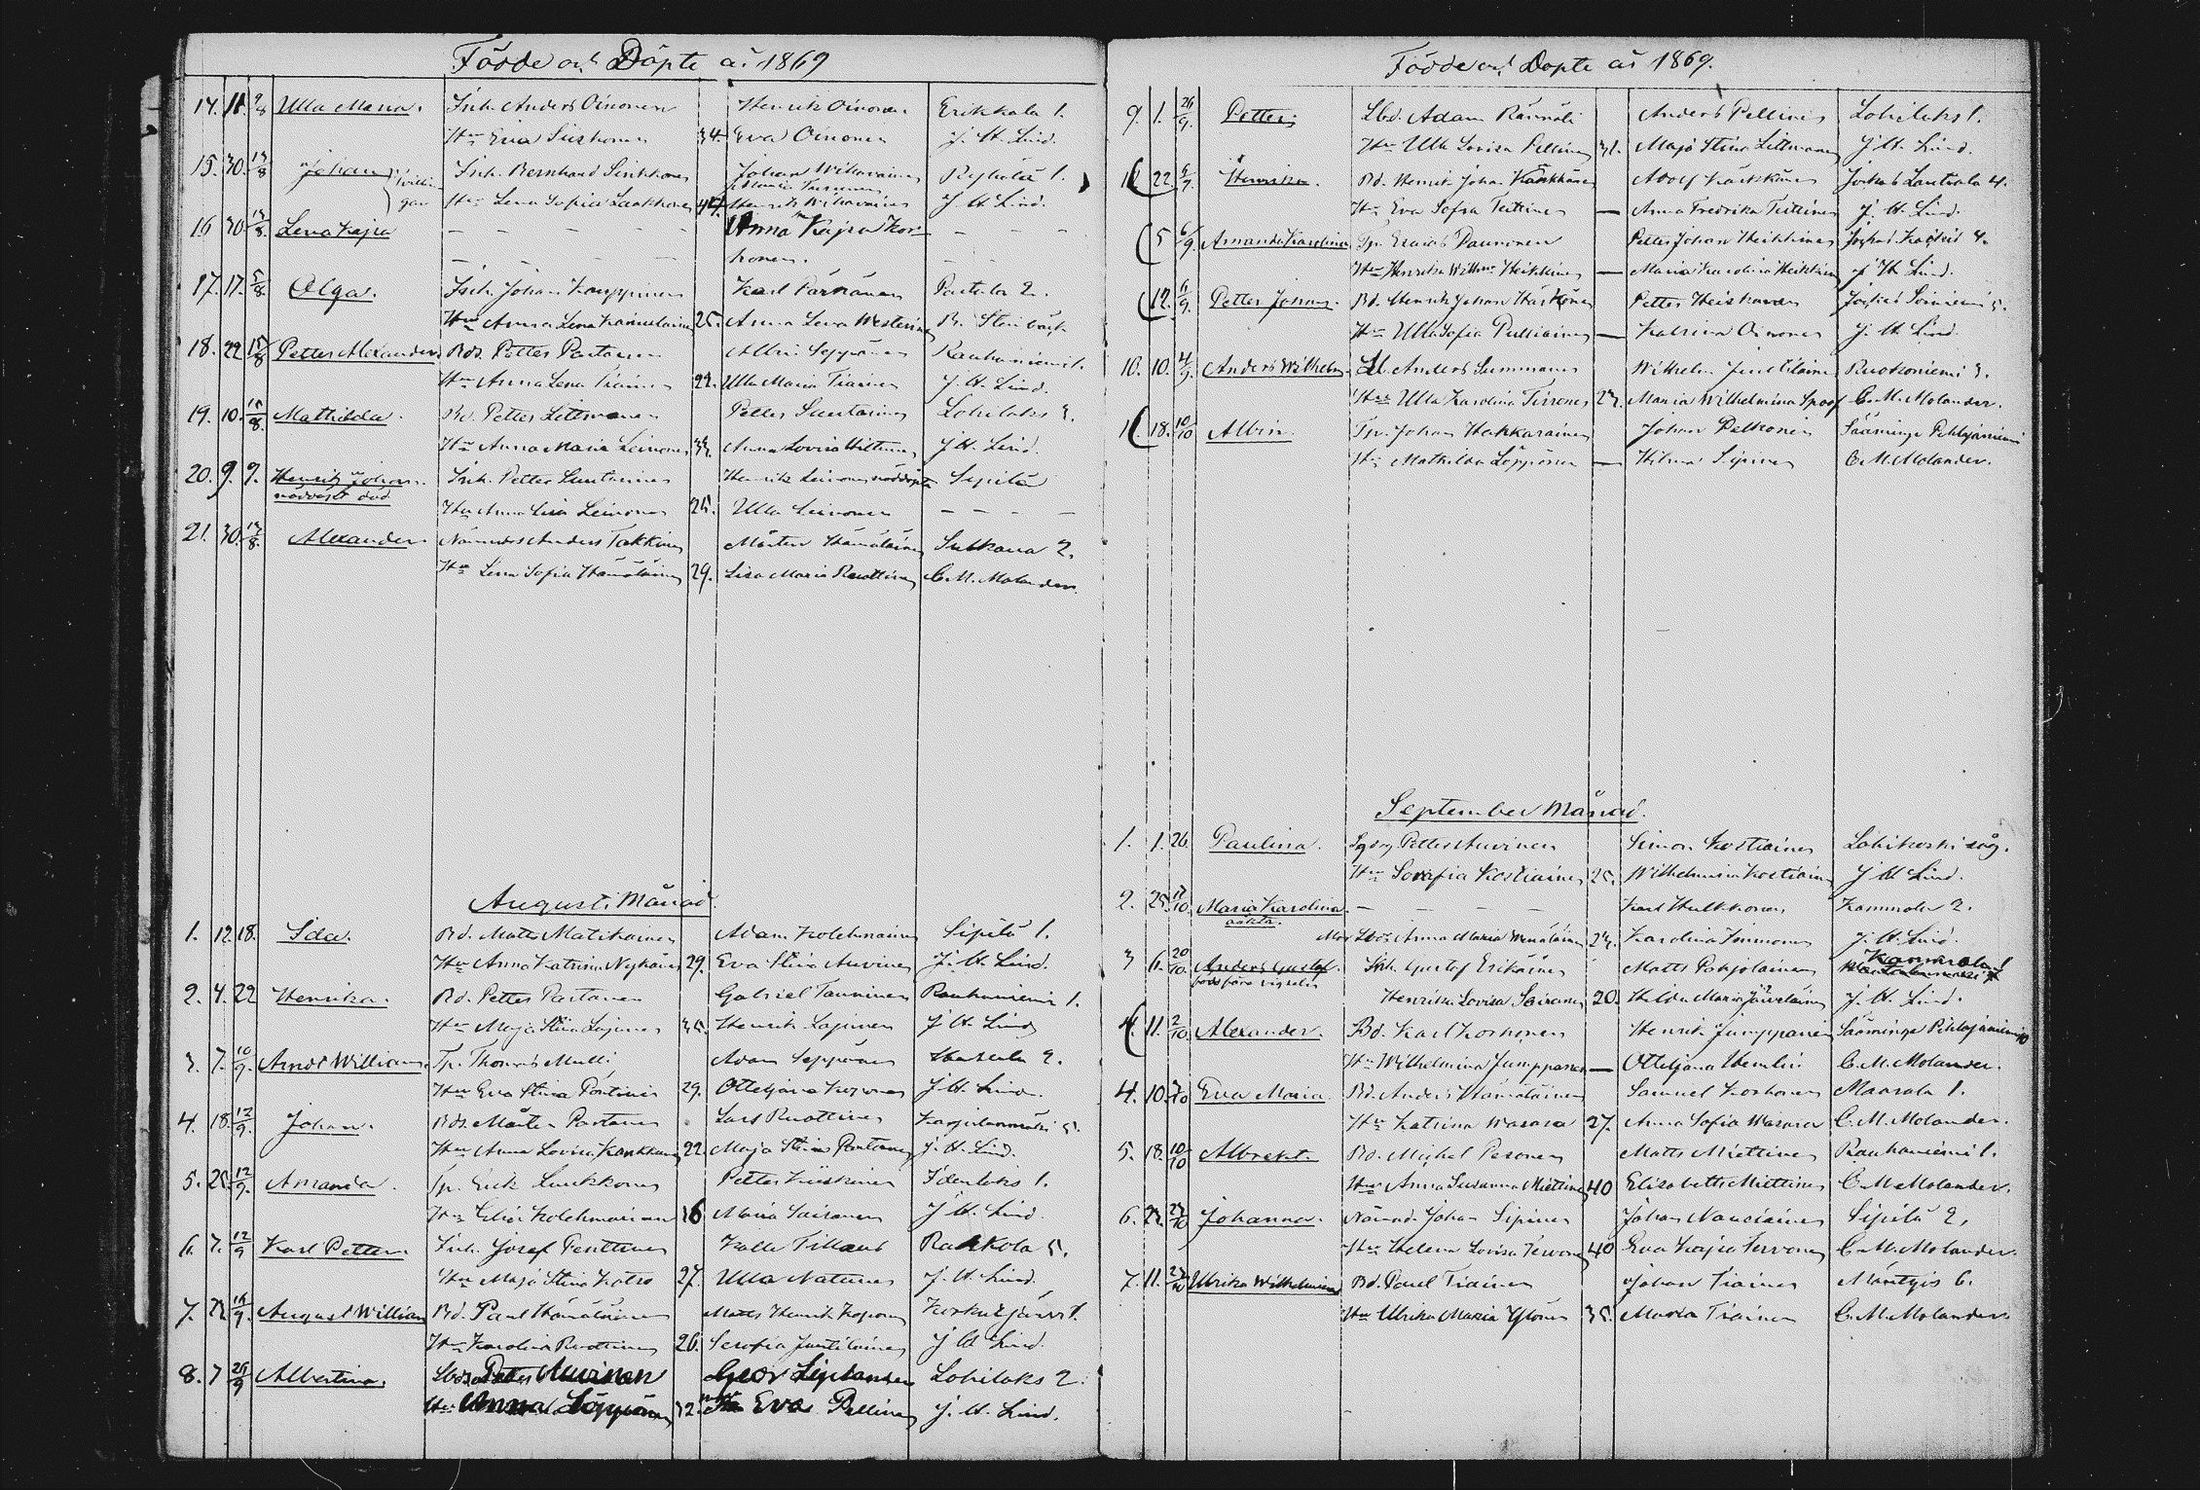 Födde och Döpte år 1869
14. 11. 2/8 Ulla Maria. Inh. Anders Oinonen Henrik Oinonen Erikkala 1.
Hu Eva 34. Eva Oinonen J. H. Lind.
15. 30. 13/8 Johan Inh. Bernhard Sinkkonen Johan Wihavainen 1.
Hu Lena Sofia Laukkonen 44. J. H. Lind.
16 30. 13/8. Lena Kajsa — — — — Anna Kajsa Kor- — — —
— — — — honen. — —
17. 17. 5/8. Olga. Inh. Johan Kauppinen Karl Pärnänen Partala 2.
Hu Anna Lena Hämäläinen 25. Anna Lena Westerinen
18. 22 15/8 Petter Alexander Bds. Petter Partanen Albin Seppänen Rauhaniemi 1.
Hu Anna Lena Tiainen 22. Ulla Maria Tiainen J. H. Lind.
19. 10. 15/8. Mathilda. Petter Littmanen Petter Suutarinen Lohilaks 3.
Hu Anna Maria Leinonen 33. Anna Lovisa J. H. Lind.
20. 9. 9. Henrik Johan. Inh. Petter Suutarinen Henrik Leinonen nöddöpte Sipilä
nöddöpt död
Hu Anna Lisa Leinonen 25. Ulla Leinonen — — — —
21. 30. 13/8. Alexander Nämndem Anders Takkinen Mårten Hämäläinen Sulkava 2.
Hu Lena Sofia Hämäläinen 29. Lisa Maria Ruottinen C. M. Molander.
Augusti Månad.
1. 12. 18. Ida. Bd. Matts Matikainen Adam Kolehmainen Sipilä 1.
Hu Anna Katrina Nykänen 29. Eva Stina Auvinen J. H. Lind.
2. 4. 22 Henrika. Bd. Petter Partanen Gabriel Tanninen Rauhaniemi 1.
Hu Maja Stina Lajunen 35. Henrik Lajunen J. H. Lind
3. 7. 10/9. Arndt William. Tp. Thomas Mulli Adam Seppänen 2.
Hu Eva Stina Pöntinen 29. Otteljana Kosonen J. H. Lind.
4. 18. 12/9. Johan. Bds. Mårten Partanen Lars Ruottinen Karjulanmäki 5.
Hu Anna Lovisa Kankkunen 22. Maja Stina Partanen J. H. Lind.
5. 25. 12/9. Amanda. Tp. Erik Luukkonen Petter Kiiskinen Idenlaks 1.
Hu Kolehmainen 36 Maria Sairanen J. H. Lind.
6. 7. 12/9 Karl Petter. Inh. Josef Penttinen Kalle Tillaeus Rakkola 5.
Hu Maja Stina Katro 27. Ulla Natunen J. H. Lind.
7. 23 16/9. August William Bd. Paul Hämäläinen Matts Henrik Koponen Korkutjärvi 1.
Hu Karolina Ruottinen 26. Serafia Junttilainen J. H. Lind.
8. 7 26/9 Albertina. Lbds. Petter Auvinen Lohilaks 2.
Hu Anna Löppönen 32. Hu Eva Pellinen J. H. Lind.
Födde och Döpte år 1869.
9. 1. 26/9. Petter. Lbd. Adam Ränneli Anders Pellinen Lohilaks 1.
Hu Ulla Lovisa Pellinen 31. Maja Stina Littmanen J. H. Lind.
22. 5/9. Henrika. Bd. Henrik Johan Käkkänen Adolf Käkkänen Jockas Lautiala 4.
Hu Eva Sofia Teittinen — Anna Fredrika Teittinen J. H. Lind.
5 6/9. Amanda Karolina Tp. Esaias Paunonen Petter Johan Heikkinen 4.
Hu Henrika Wilhm. Heikkinen — Maria Karolina Heikkinen J. H. Lind.
12. 11/9. Petter Johan. Bd. Henrik Johan Petter Heiskanen 5.
Hu Ulla Sofia Pulliainen — Katrina Oinonen J. H. Lind.
10. 10. 4/9. Anders Wilhelm. Anders Summanen Wilhelm Junttilainen Ruokoniemi 3.
Hu Ulla Karolina Tirronen 23. Maria Wilhelmina Spoof C. M. Molander.
18. 10/10 Albin. Tp. Johan Hakkarainen Johan Pelkonen Sääminge Pihlajaniemi
Hu Mathilda Löppönen — Hilma Sipinen C. M. Molander.
September Månad.
1. 1. 26. Paulina. Petter Auvinen Simon Kostiainen Lohikoski såg.
Hu Serafia Kostiainen 25. Wilhelmina Kostiainen J. H. Lind.
2. 25. 17/10. Maria Karolina — — — — Karl Hulkkonen Kammola 2.
oäkta.
Anna Maria Wenäläinen 23. Karolina Immonen J. H. Lind.
3 6. 20/10. Anders Gustaf Inh. Gustaf Eriksinen Matts Pohjolainen Kammola 1
född före vigseln
Henrika Lovisa Sairanen 20. Hilda Maria J. H. Lind.
11. 2/10 Alexander. Bd. Karl Korhonen Henrik Jumppanen Sääminge Pihlajaniemi 10
Hu Wilhelmina Jumppanen — Otteljana Hemlin C. M. Molander.
4. 10. 3/10 Eva Maria Bd. Anders Hämäläinen Samuel Korhonen Maarala 1.
Hu Katrina Wasara 27. Anna Sofia Wasara C. M. Molander.
5. 18. 10/10 Albrekt. Bd. Michel Pesonen Matts Miettinen Rauhaniemi 1.
Hu Anna Susanna Miettinen 40 Elisabeth Miettinen C. M. Molander.
6. 22. 24/10 Johanna. Nämnd. Johan Sipinen Johan Nousiainen Sipilä 2.
Hu Helena Lovisa Tervonen 40 Eva Kajsa Tervonen C. M. Molander.
7. 11. 24/10 Ulrika Wilhelmina Bd. Paul Tiainen Johan Tiainen Mäntyis 6.
Hu Ulrika Maria Ylönen 35. Maria Tiainen C. M. Molander.